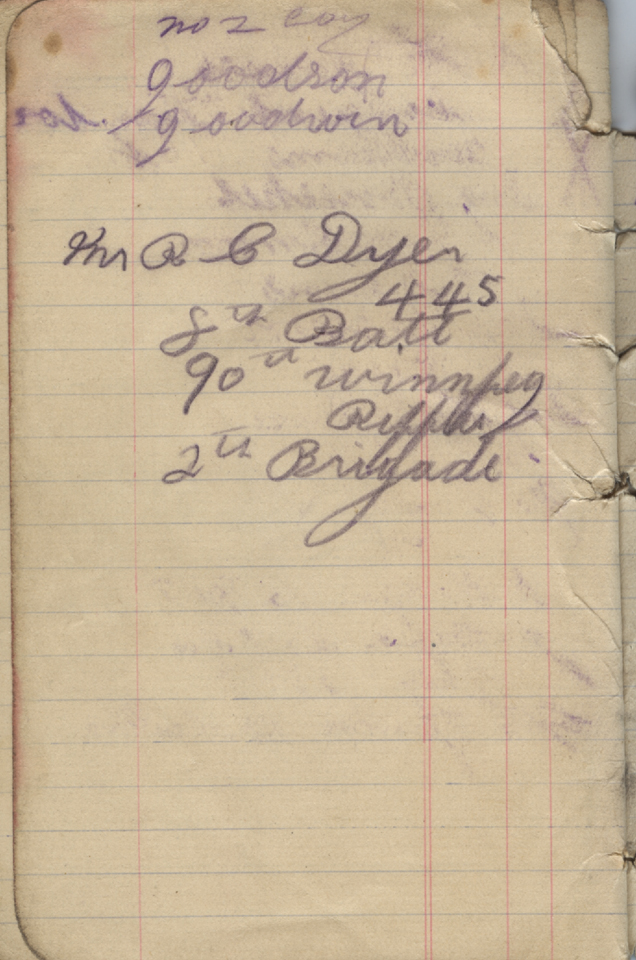 no 2 coy
goodson
goodwin
Mr R C Dyer
445
8th Batt
90th Winnipeg
Rifles
2th Brigade